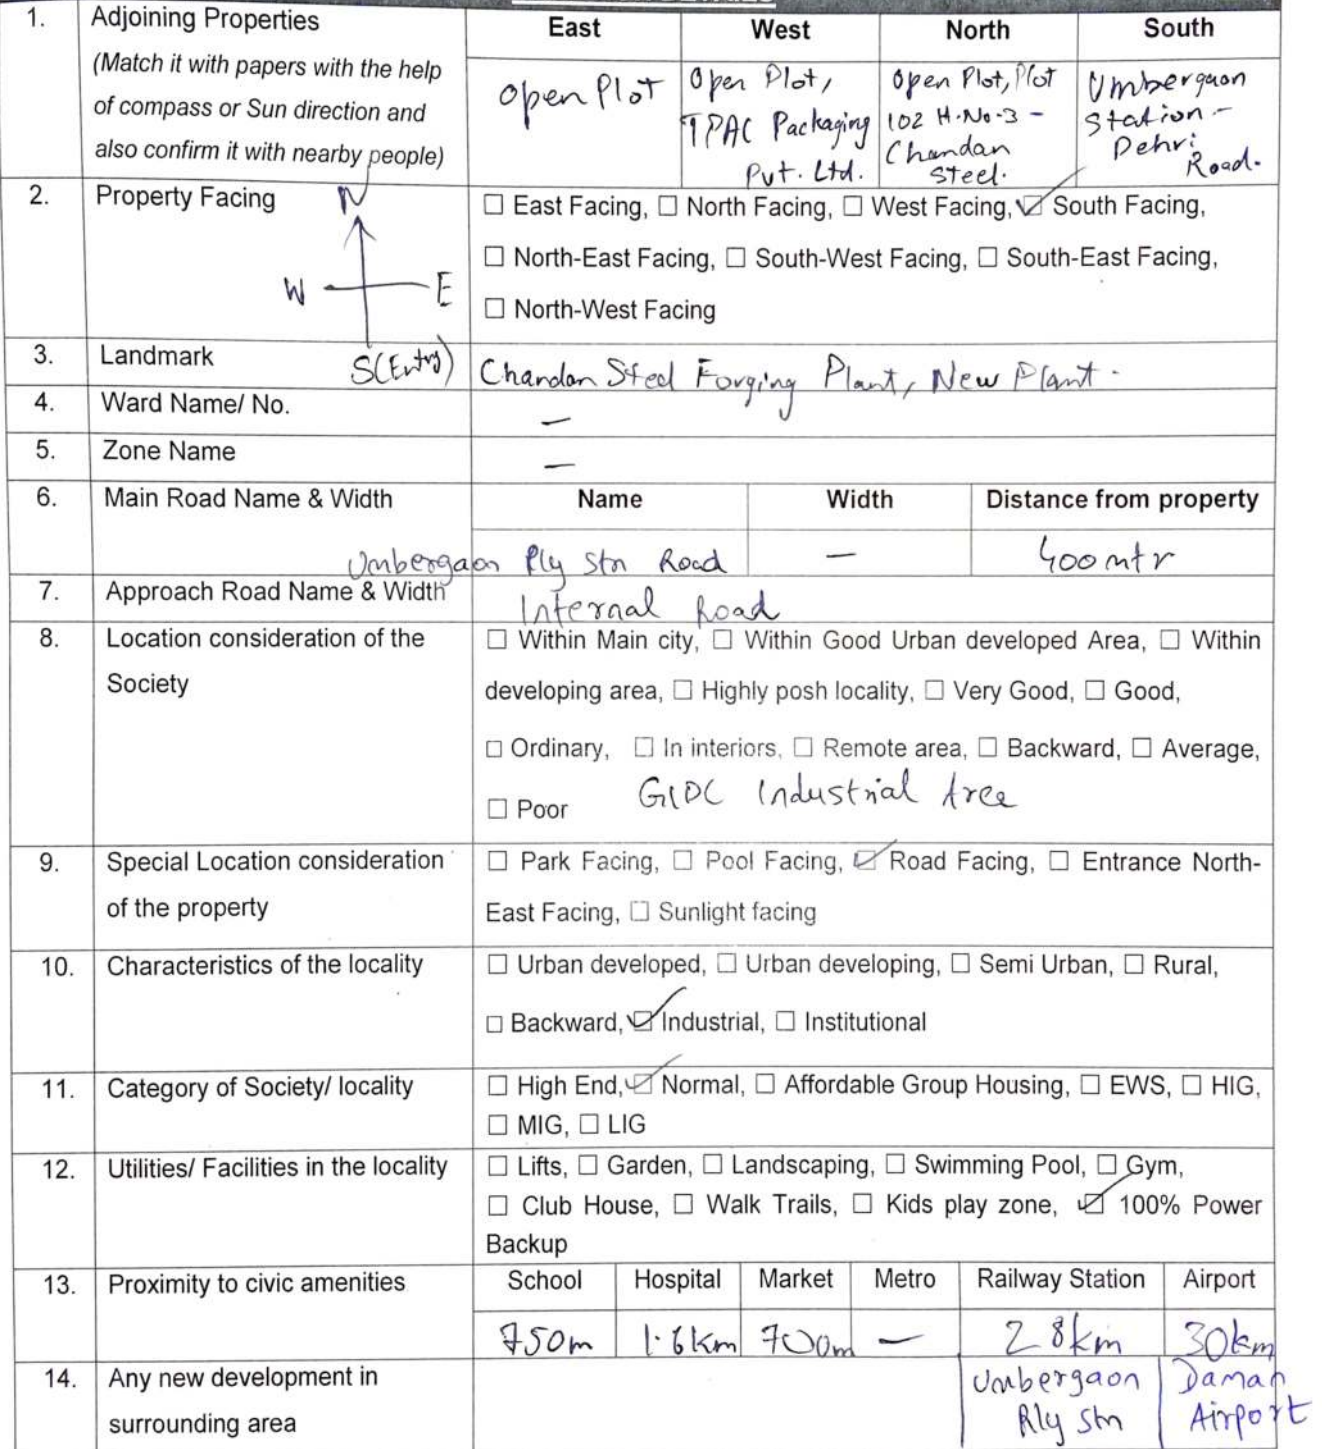 1. Adjoining Properties
(Match it with papers with the help
of compass or Sun direction and
also confirm it with nearby people)
East West North South
Open Plot
Open Plot,
TPAC Packaging
Pvt. Ltd.
Open Plot, Plot
102 H.No-3 -
Chandan
Steel.
Umbergaon
Station -
Dehri
Road.
2. Property Facing
N
W E
S(Entry)
☐ East Facing, ☐ North Facing, ☐ West Facing, ☑ South Facing,
☐ North-East Facing, ☐ South-West Facing, ☐ South-East Facing,
☐ North-West Facing
3. Landmark
Chandan Steel Forging Plant, New Plant.
4. Ward Name/ No. —
5. Zone Name —
6. Main Road Name & Width
Name Width Distance from property
Umbergaon Rly Stn Road — 400 mtr
7. Approach Road Name & Width Internal Road
8. Location consideration of the
Society
☐ Within Main city, ☐ Within Good Urban developed Area, ☐ Within
developing area, ☐ Highly posh locality, ☐ Very Good, ☐ Good,
☐ Ordinary, ☐ In interiors, ☐ Remote area, ☐ Backward, ☐ Average,
☐ Poor GIDC Industrial Area
9. Special Location consideration
of the property
☐ Park Facing, ☐ Pool Facing, ☑ Road Facing, ☐ Entrance North-
East Facing, ☐ Sunlight facing
10. Characteristics of the locality
☐ Urban developed, ☐ Urban developing, ☐ Semi Urban, ☐ Rural,
☐ Backward, ☑ Industrial, ☐ Institutional
11. Category of Society/ locality
☐ High End, ☑ Normal, ☐ Affordable Group Housing, ☐ EWS, ☐ HIG,
☐ MIG, ☐ LIG
12. Utilities/ Facilities in the locality
☐ Lifts, ☐ Garden, ☐ Landscaping, ☐ Swimming Pool, ☐ Gym,
☐ Club House, ☐ Walk Trails, ☐ Kids play zone, ☑ 100% Power
Backup
13. Proximity to civic amenities
School Hospital Market Metro Railway Station Airport
750m 1.6km 700m — 2 8km 30km
14. Any new development in
surrounding area
Umbergaon
Rly Stn
Daman
Airport